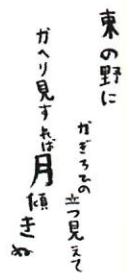 東の野に
かぎろひの
立つ見えて
かへり見すれば
月傾きぬ